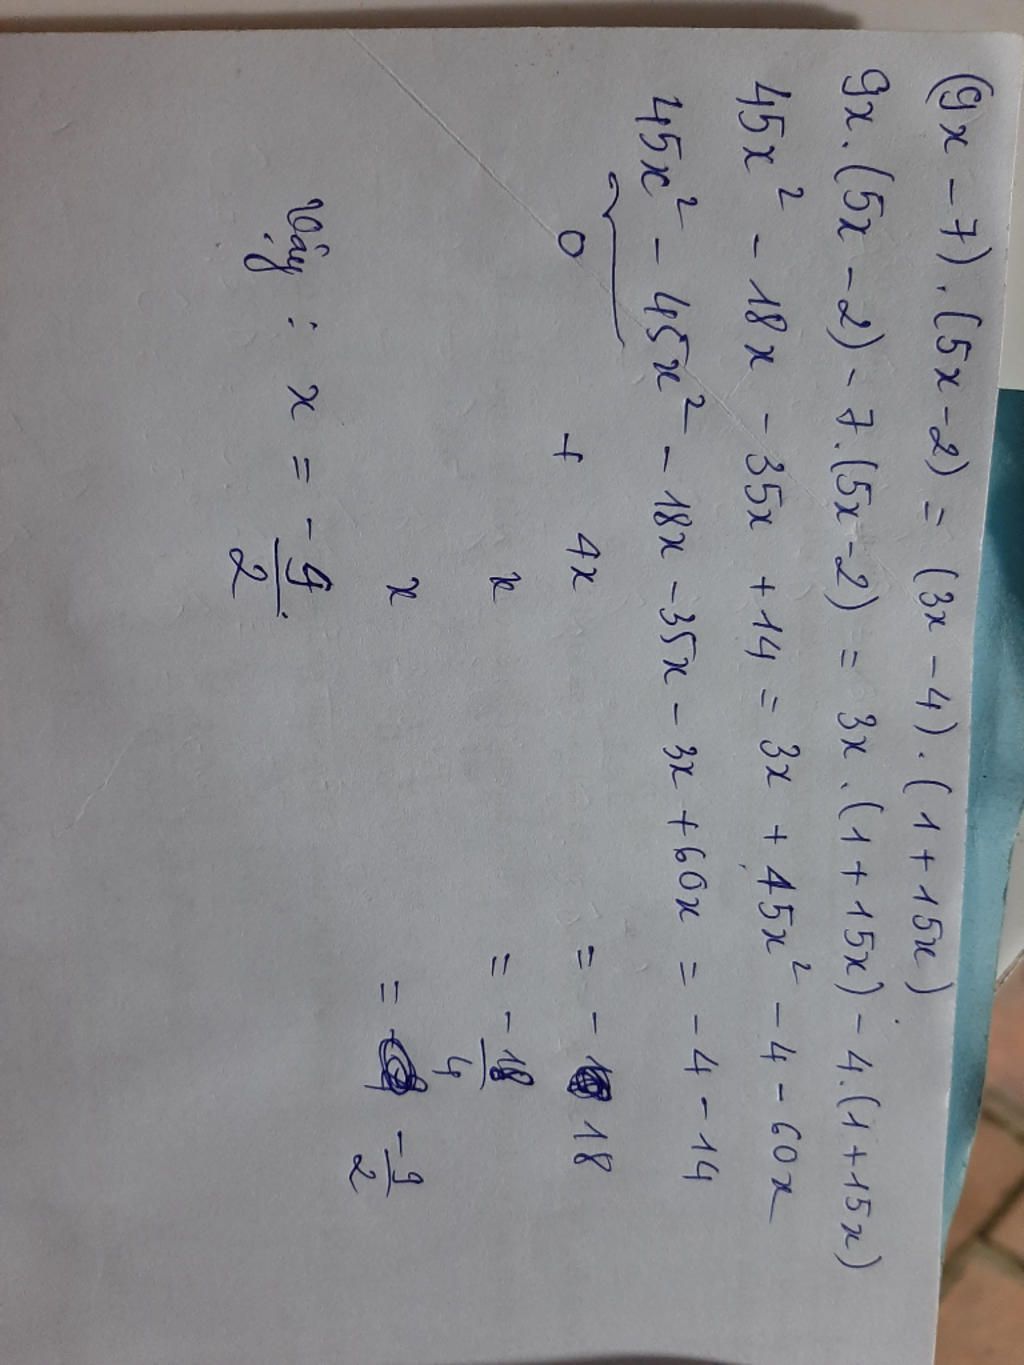 (9x - 7) . (5x - 2) = (3x - 4) . (1 + 15x)
9x . (5x - 2) - 7 . (5x - 2) = 3x . (1 + 15x) - 4 . (1 + 15x)
45x² - 18x - 35x + 14 = 3x + 45x² - 4 - 60x
45x² - 45x² - 18x - 35x - 3x + 60x = - 4 - 14
0 + 4x = - 18
x = - 18/4
x = -9/2
Vậy : x = - 9/2.